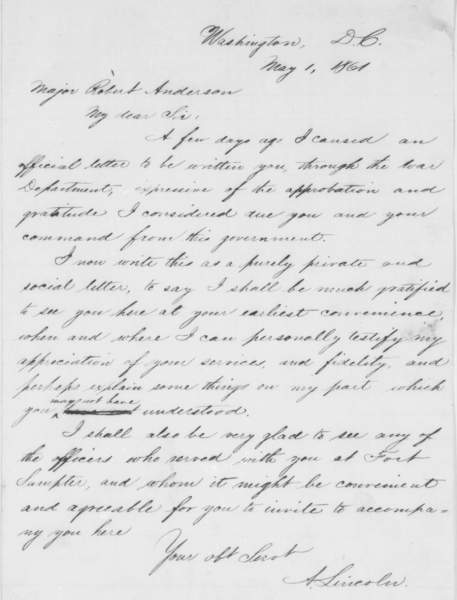 Washington, D.C.
May 1, 1861
Major Robert Anderson
My dear Sir.
A few days ago I caused an
official letter to be written you, through the War
Department, expressive of the approbation and
gratitude I considered due you and your
command from this government.
I now write this as a purely private and
social letter, to say I shall be much gratified
to see you here at your earliest convenience,
when and where I can personally testify my
appreciation of your services, and fidelity, and
perhaps explain some things on my part which
may not have
you understood.
I shall also be very glad to see any of
the officers who served with you at Fort
Sumpter, and whom it might be convenient
and agreeable for you to invite to accompa-
ny you here
Your obt Servt
A. Lincoln.